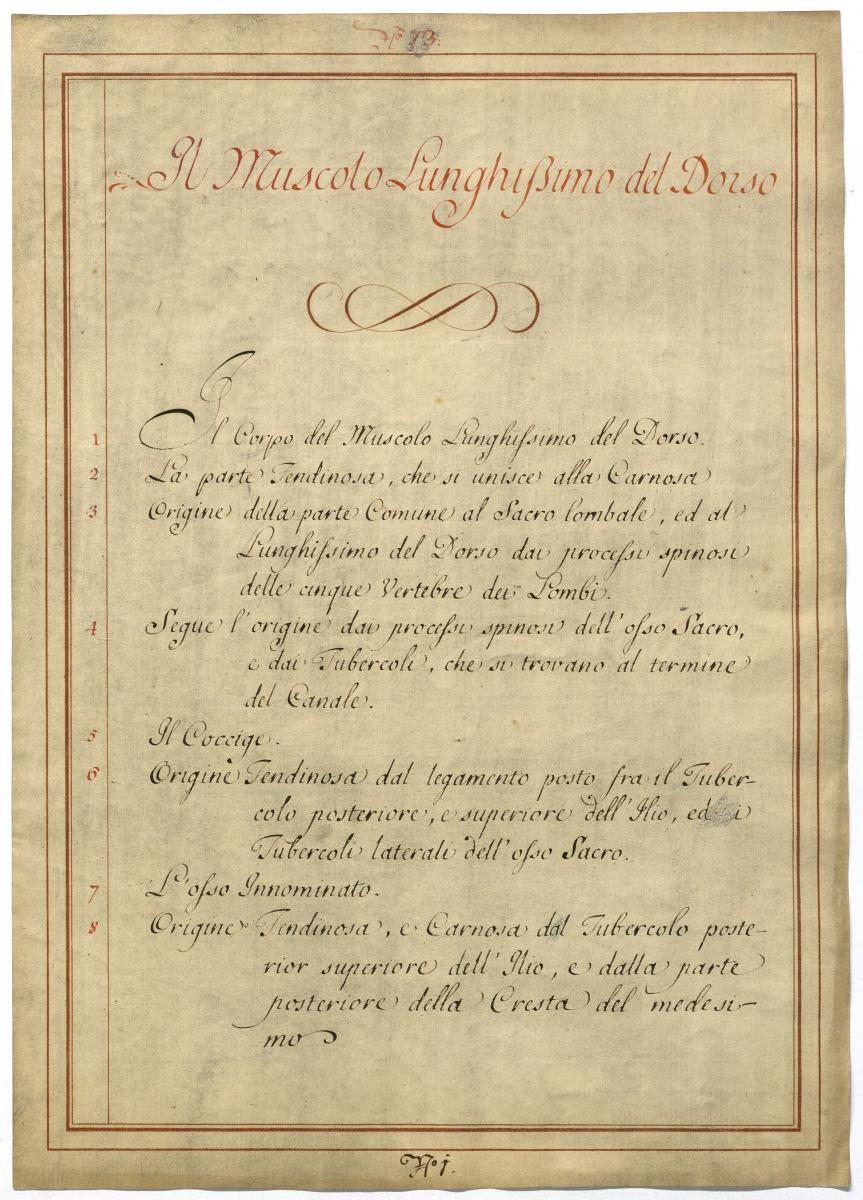 No. 73.
Il Muscolo Lunghissimo del Dorso
1 Il Corpo del Muscolo Lunghissimo del Dorso.
2 La parte Tendinosa, che si unisce alla Carnosa
3 Origine della parte Comune al Sacro lombale, ed al
Lunghissimo del Dorso dai processi spinosi
delle cinque Vertebre dei Lombi.
4 Segue l'origine dai processi spinosi dell'osso Sacro,
e dai Tubercoli, che si trovano al termine
del Canale.
5 Il Coccige.
6 Origine Tendinosa dal legamento posto fra il Tuber-
colo posteriore, e superiore dell'Ilio, ed i
Tubercoli laterali dell'osso Sacro.
7 L'osso Innominato.
8 Origine Tendinosa, e Carnosa dal Tubercolo poste-
rior superiore dell'Ilio, e dalla parte
posteriore della Cresta del medesi-
mo
No. 1.